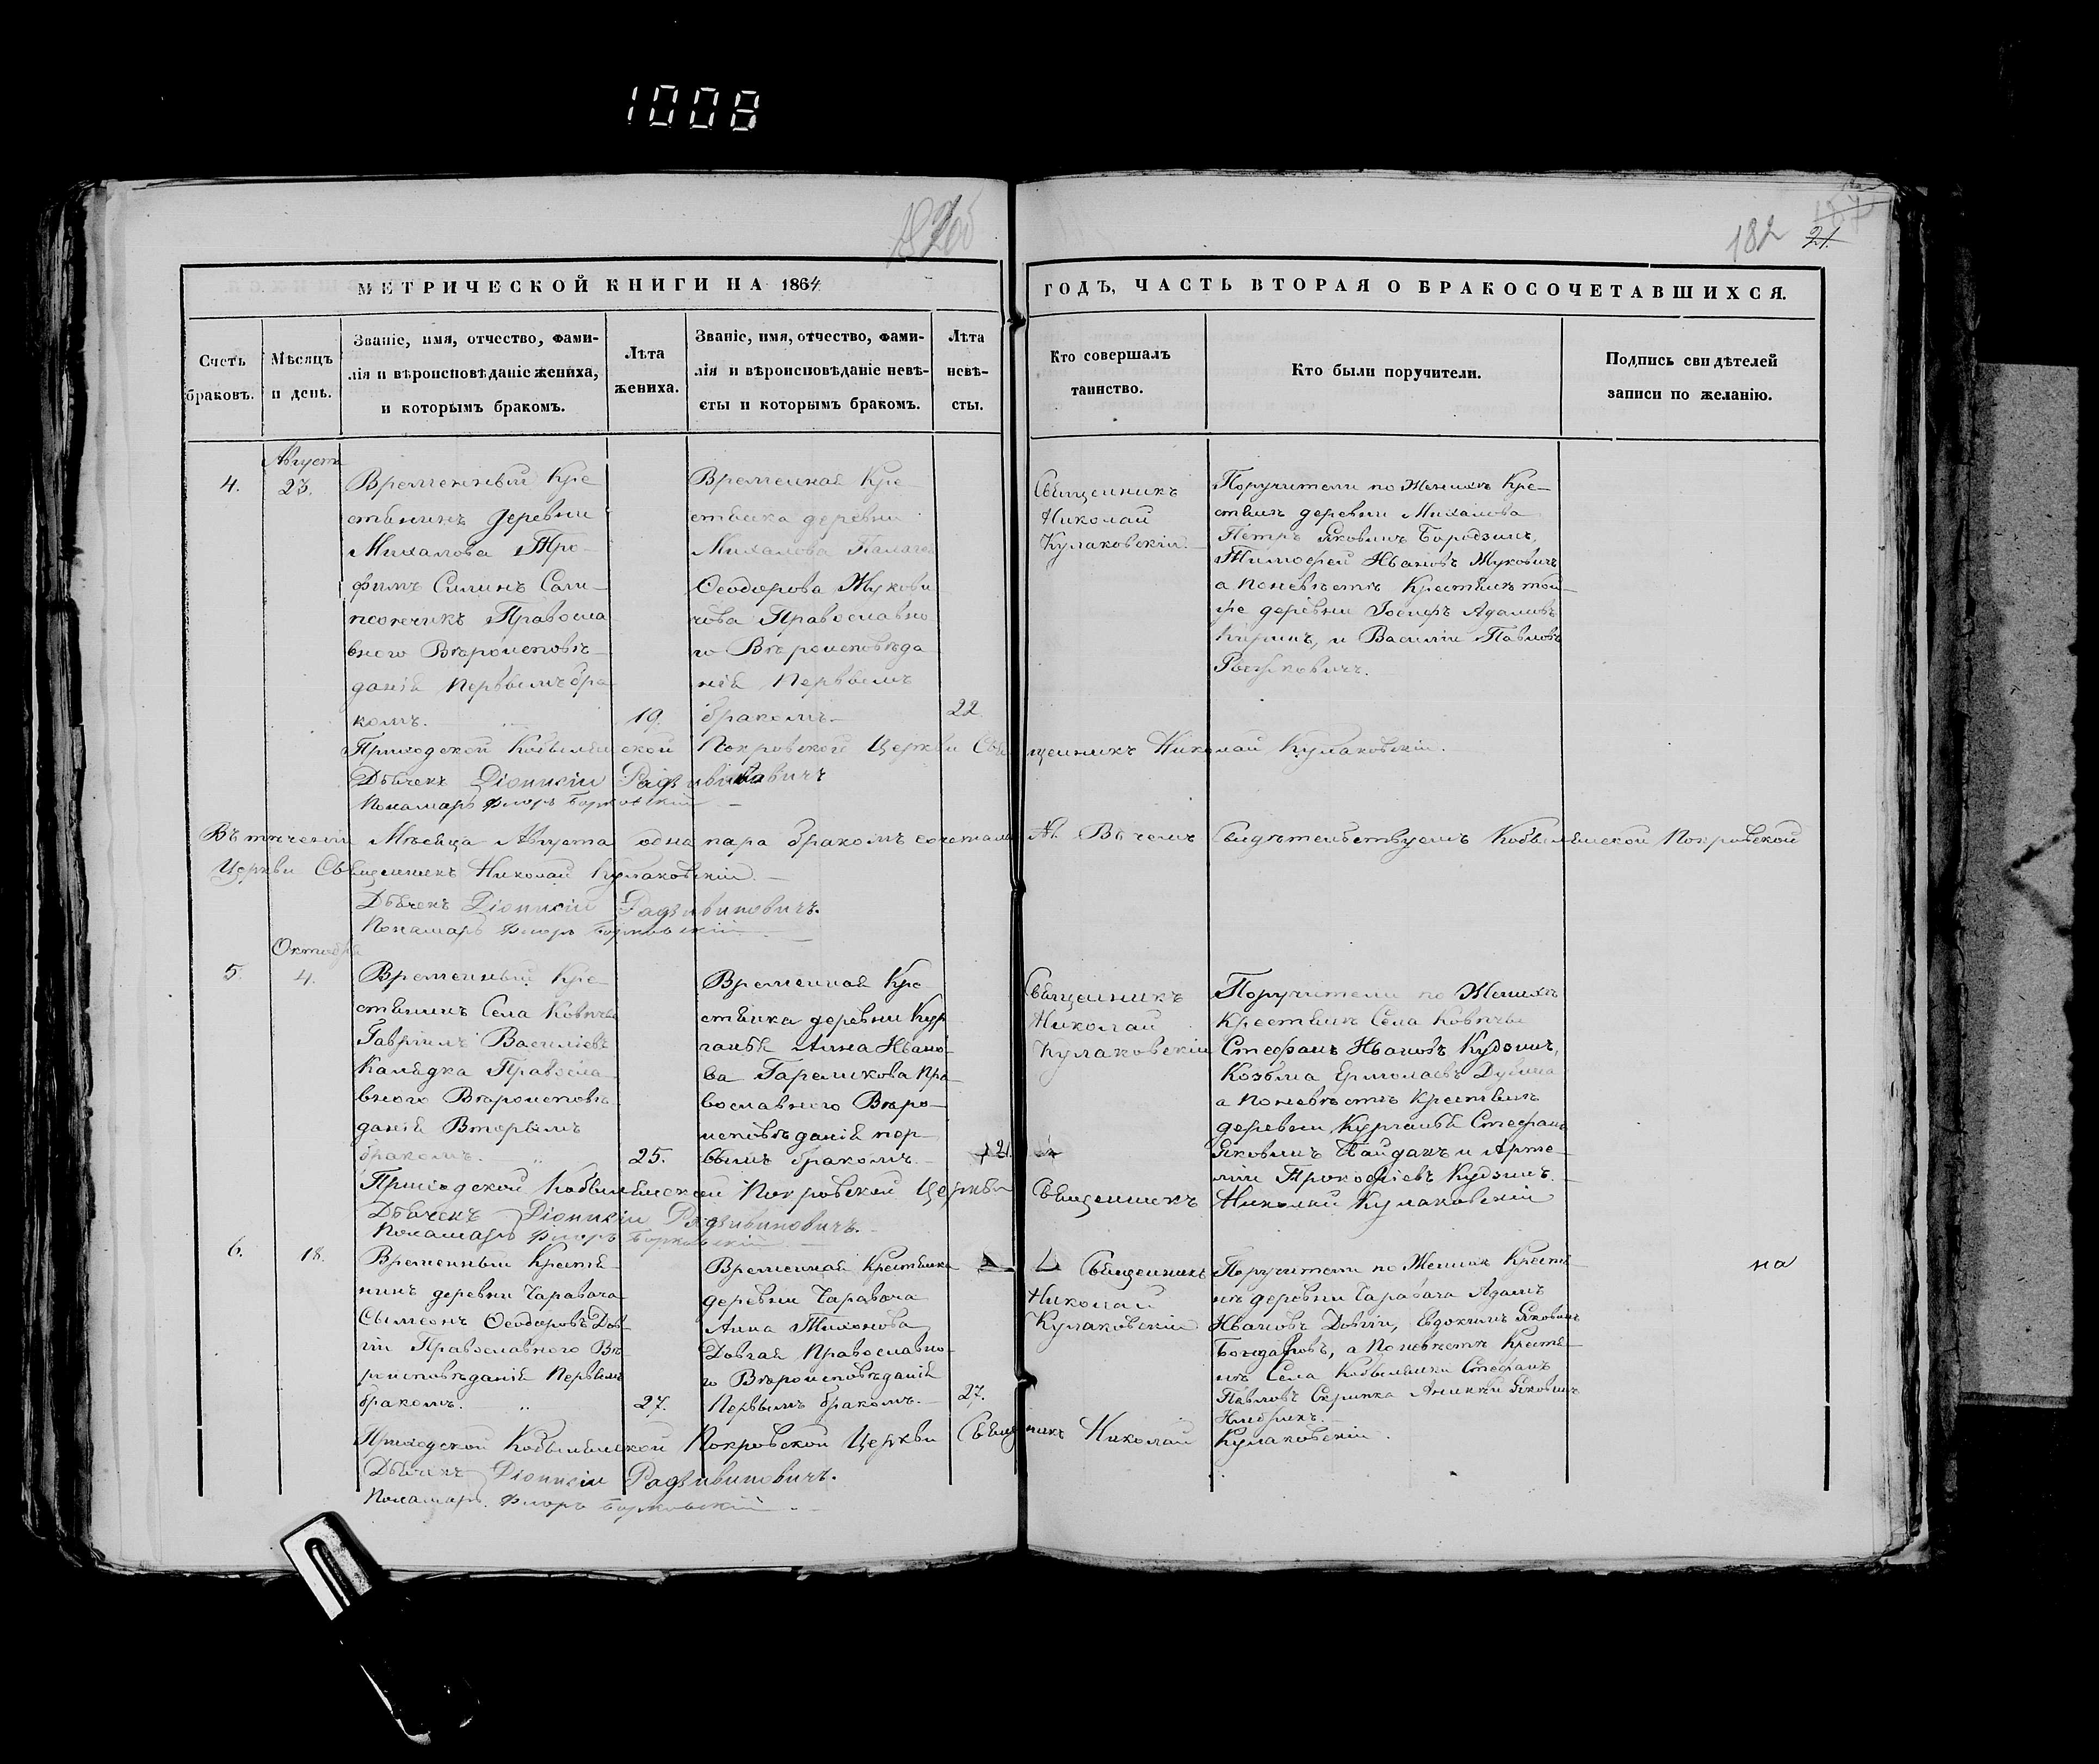 1008
182
21.
МЕТРИЧЕСКОЙ КНИГИ НА 1864
ГОДЪ, ЧАСТЬ ВТОРАЯ О БРАКОСОЧЕТАВШИХСЯ.
Счетъ
браковъ.
Мѣсяцъ
и день.
Званіе, имя, отчество, фами-
лія и вѣроисповѣданіе жениха,
и которымъ бракомъ.
Лѣта
жениха.
Званіе, имя, отчество, фами-
лія и вѣроисповѣданіе невѣ-
сты и которымъ бракомъ.
Лѣта
невѣ-
сты.
Кто совершалъ
таинство.
Кто были поручители.
Подпись свидѣтелей
записи по желанію.
4.
Августа
23.
Временный Кре
стянинъ деревни
Михалова Тро-
фимъ Силинъ
Правосла
вного Вѣроисповѣ-
данія Первымъ бра
комъ.
19.
Временная Кре
стянка деревни
Михалова
Ѳеодорова Жукови
чова Православно
го Вѣроисповѣда
нія Первымъ
бракомъ.
22.
Священникъ
Николай
Кулаковскій.
Поручители по Женихѣ Кре-
стяне деревни Михалова
Петръ Яковинъ
Тимофей Ивановъ Жуковичъ
а по невѣстѣ Крестяне той
же деревни Іосифъ Адамовъ
и Василій Павловъ
Приходской Кобылянской Покровской Церкви Священникъ Николай Кулаковскій.
Дьячекъ Діонисій Радзивиновичъ
Пономарь Флоръ Борковскій
Въ теченіи Мѣсяца Августа одна пара бракомъ сочеталась. Въ чемъ свидѣтельствуемъ Кобылянской Покровской
Церкви Священникъ Николай Кулаковскій.
Дьячекъ Діонисій Радзивиновичъ.
Пономарь Флоръ Борковскій
5.
Октября
4.
Временный Кре
стянинъ Села
Гавріилъ Василіевъ
Калядка Правосла
вного Вѣроисповѣ
данія Вторымъ
бракомъ.
25.
Временная Кре
стянка деревни Кур
ганья Анна Ивано
ва Гареликова Пра
вославного Вѣро-
исповѣданія пер
вымъ бракомъ.
21.
Священникъ
Николай
Кулаковскій
Поручители по Женихѣ
Крестяне Села
Стефанъ Ивановъ Кудзинъ,
Козьма Ермолаевъ
а по невѣстѣ Крестяне
деревни Курганья Стефанъ
Яковинъ Найданъ и Арте-
мій Прокофіевъ Кудзинъ.
Приходской Кобылянской Покровской Церкви Священникъ Николай Кулаковскій
Дьячекъ Діонисій Радзивиновичъ.
Пономарь Флоръ Борковскій
6.
18.
Временный Крестя
нинъ деревни Чаравача
Сымеонъ Ѳеодоровъ Дов-
гій Православного Вѣ-
роисповѣданія Первымъ
бракомъ.
27.
Временная Крестянка
деревни Чаравача
Анна Тихонова
Довгая Православно-
го Вѣроисповѣданія
Первымъ бракомъ.
27.
Священникъ
Николай
Кулаковскій
Поручители по Женихѣ Крестя-
не деревни Чаравача Адамъ
Ивановъ Довгій, Евдокимъ Яковинъ
Богдановъ, а по невѣстѣ Крестя-
не Села Кобылянки Стефанъ
Павловъ Скрипка Яковинъ
на
Приходской Кобылянской Покровской Церкви Николай Кулаковскій.
Дьячекъ Діонисій Радзивиновичъ.
Пономарь Флоръ Борковскій